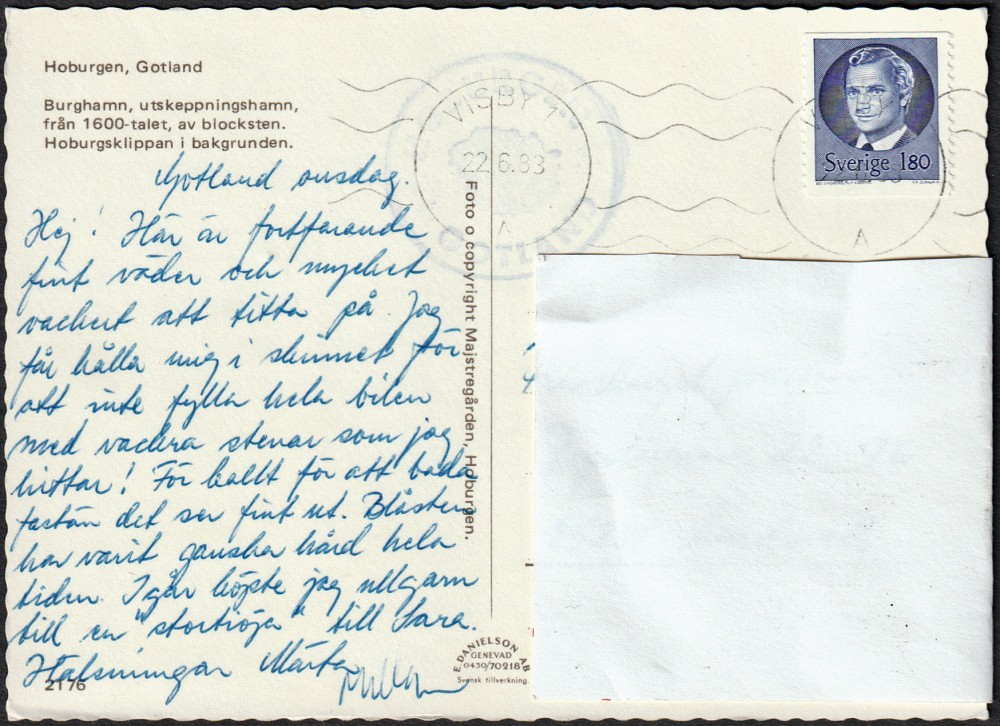 Hoburgen, Gotland
Burghamn, utskeppningshamn,
från 1600-talet, av blocksten.
Hoburgsklippan i bakgrunden.
VISBY 1
22.6.83
A
GOTLAND
Sverige 180
A
Gotland onsdag.
Hej! Här är fortfarande
fint väder och mycket
vackert att titta på. Jag
får hålla mig i skinnet för
att inte fylla hela bilen
med vackra stenar som jag
hittar! För kallt för att bada
fastän det ser fint ut. Blåsten
har varit ganska hård hela
tiden. Igår köpte jag ullgarn
till en "stortröja" till Sara.
Hälsningar Märta
Foto o copyright Majstregården, Hoburgen.
2176
E. DANIELSON AB
GENEVAD
0430/70218
Svensk tillverkning.